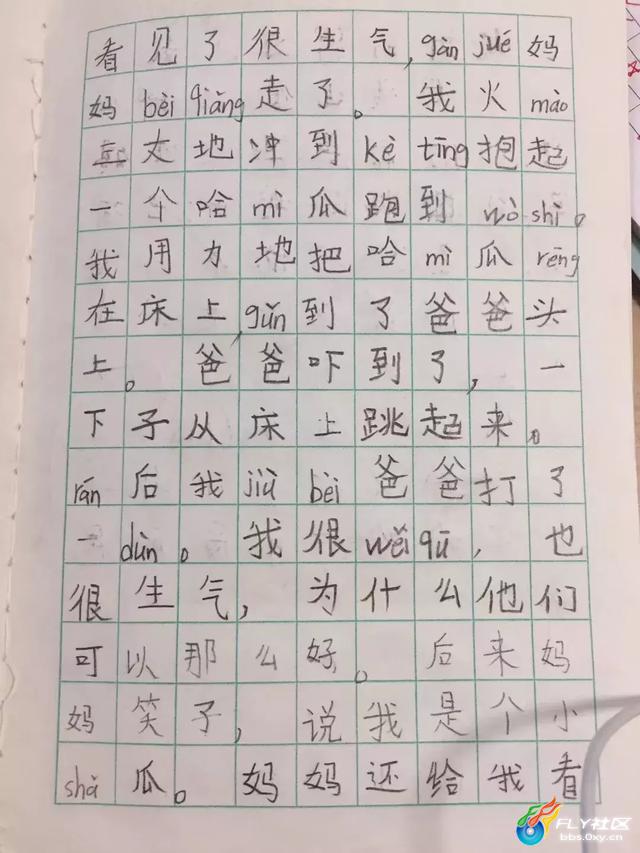 看见了很生气,gǎn jué妈
妈bèi qiǎng走了。我火mào
丈地冲到kè tīng抱起
一个哈mì瓜跑到wò shì。
我用力地把哈mì瓜rēng
在床上,gǔn到了爸爸头
上。爸爸吓到了,一
下子从床上跳起来。
rán后我jiù bèi爸爸打了
一dùn。我很wěi qū,也
很生气,为什么他们
可以那么好。后来妈
妈笑了,说我是个小
shǎ瓜。妈妈还给我看
FLY社区
bbs.0xy.cn